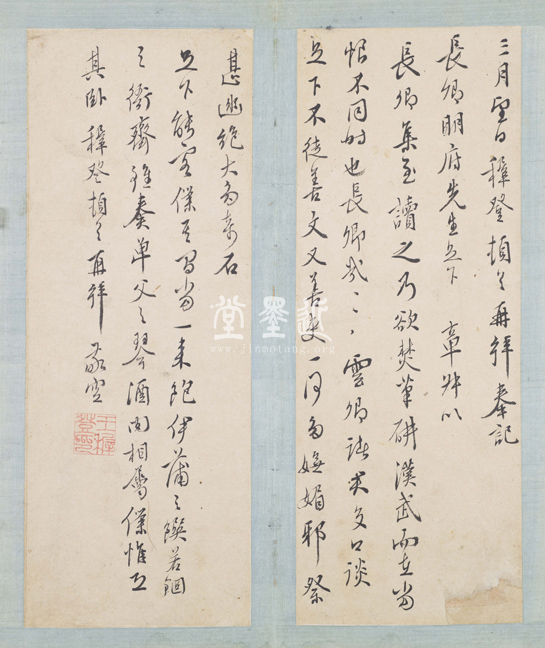 三月望日穉登頓首再拜奉記
長卿明府先生足下
長卿集至讀之乃欲焚筆研漢武而在當
恨不同時也長卿哉〻〻雲卿誇樂多口談
足下不徒善文又善吏一何多嫵媚邪祭
甚幽絕大多奇石
足下能客僕其間當一来飽伊蒲之饌若錮
之衙齋雖奏單父之琴酒肉相勞僕惟有
其卧穉登頓首再拜
王穉登印
近墨堂
www.jinmotang.org